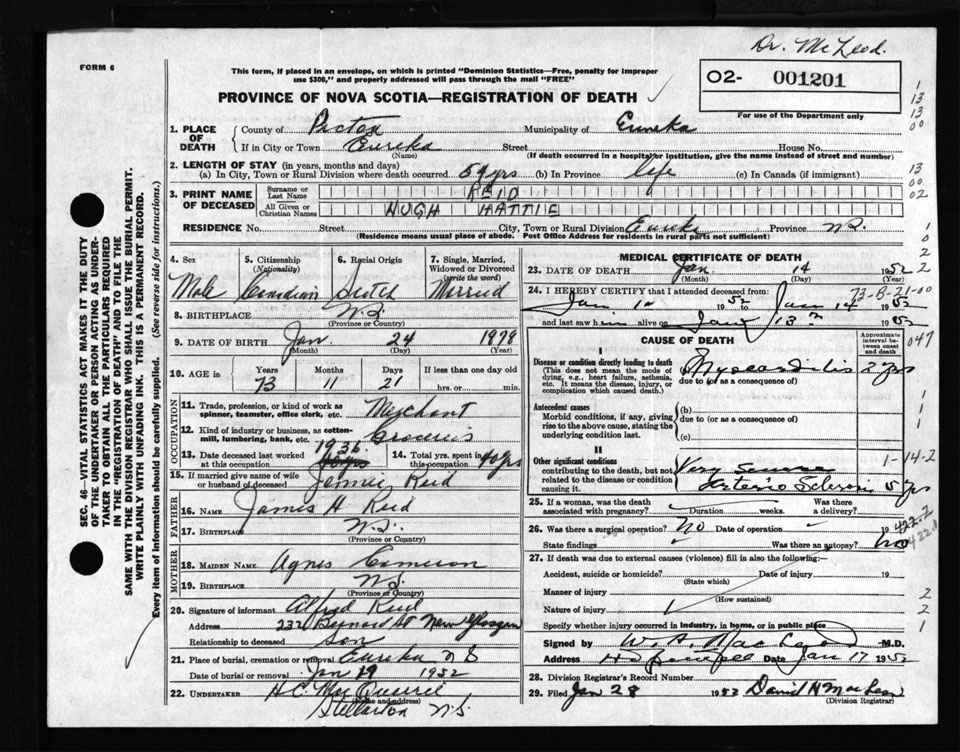 Dr. McLeod.
FORM 6
This form, if placed in an envelope, on which is printed "Dominion Statistics—Free, penalty for improper
use $300," and properly addressed will pass through the mail "FREE"
O2- 001201
For use of the Department only
PROVINCE OF NOVA SCOTIA—REGISTRATION OF DEATH
1. PLACE OF DEATH
County of Pictou Municipality of Eureka
If in City or Town Eureka Street House No.
(Name) (If death occurred in a hospital or institution, give the name instead of street and number)
2. LENGTH OF STAY (in years, months and days)
(a) In City, Town or Rural Division where death occurred 54 yrs (b) In Province life (c) In Canada (if immigrant)
3. PRINT NAME OF DECEASED
Surname or Last Name REID
All Given or Christian Names HUGH HATTIE
RESIDENCE No. Street City, Town or Rural Division Eureka Province N.S.
(Residence means usual place of abode. Post Office Address for residents in rural parts not sufficient)
4. Sex Male
5. Citizenship (Nationality) Canadian
6. Racial Origin Scotch
7. Single, Married, Widowed or Divorced (write the word) Married
8. BIRTHPLACE N.S.
(Province or Country)
9. DATE OF BIRTH Jan. 24 1878
(Month) (Day) (Year)
10. AGE in Years Months Days If less than one day old
73 11 21 hrs. or min.
OCCUPATION
11. Trade, profession, or kind of work as spinner, teamster, office clerk, etc. Merchant
12. Kind of industry or business, as cotton-mill, lumbering, bank, etc. Groceries
13. Date deceased last worked at this occupation 1936
14. Total yrs. spent in this occupation 40 yrs
15. If married give name of wife or husband of deceased Jennie Reid
FATHER
16. NAME James H Reid
17. BIRTHPLACE N.S.
(Province or Country)
MOTHER
18. MAIDEN NAME Agnes Cameron
19. BIRTHPLACE N.S.
(Province or Country)
20. Signature of informant Alfred Reid
Address 232 Bernard St New Glasgow
Relationship to deceased Son
21. Place of burial, cremation or removal Eureka N S
Date of burial or removal Jan 1952
22. UNDERTAKER H.C. MacQuarrie
(Name and address)
Stellarton N.S.
MEDICAL CERTIFICATE OF DEATH
23. DATE OF DEATH Jan. 14 1952
(Month) (Day) (Year)
73-B-21-00
24. I HEREBY CERTIFY that I attended deceased from:
Jan 1 1952 Jan 14 1952
and last saw him alive on Jan 13 1952
CAUSE OF DEATH
Approximate interval between onset and death
I
Disease or condition directly leading to death
(This does not mean the mode of dying, e.g., heart failure, asthenia, etc. It means the disease, injury, or complication which caused death.)
Myocarditis 2 yrs
due to (or as a consequence of)
Antecedent causes
Morbid conditions, if any, giving rise to the above cause, stating the underlying condition last.
(b)
due to (or as a consequence of)
(c)
II
Other significant conditions
contributing to the death, but not related to the disease or condition causing it.
Very Severe
Arterio Sclerosis 5 yrs
1-14-2
25. If a woman, was the death associated with pregnancy? Duration weeks. Was there a delivery?
26. Was there a surgical operation? No Date of operation 19
422.2
State findings Was there an autopsy? No
422.1
27. If death was due to external causes (violence) fill in also the following:
Accident, suicide or homicide? Date of injury 19
(State which)
Manner of injury
(How sustained)
Nature of injury
Specify whether injury occurred in industry, in home, or in public place
Signed by W. A. MacLeod M.D.
Address Date Jan 17 1952
28. Division Registrar's Record Number
29. Filed Jan 28 1952 David H MacLean
(Division Registrar)
SEC. 46—VITAL STATISTICS ACT MAKES IT THE DUTY
OF THE UNDERTAKER OR PERSON ACTING AS UNDER-
TAKER TO OBTAIN ALL THE PARTICULARS REQUIRED
IN THE "REGISTRATION OF DEATH" AND TO FILE THE
SAME WITH THE DIVISION REGISTRAR WHO SHALL ISSUE THE BURIAL PERMIT.
WRITE PLAINLY WITH UNFADING INK. THIS IS A PERMANENT RECORD.
Every item of information should be carefully supplied. (See reverse side for instructions.)
1
13
13
00
13
00
02
1
0
2
2
047
1
1
1
2
2
1